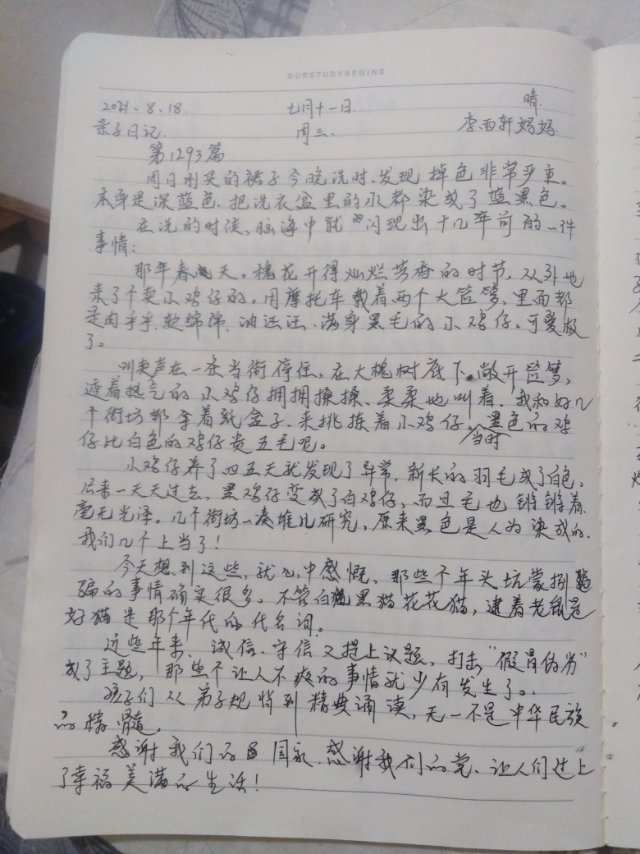 OURSTUDYBEGINS
2021.8.18. 七月十一日. 晴.
亲子日记. 周三. 李西轩妈妈
第1293篇
周日刚买的裙子今晚洗时.发现掉色非常严重。
本身是深蓝色.把洗衣盆里的水都染成了蓝黑色。
在洗的时候,脑海中就闪现出十几年前的一件
事情:
那年春天,槐花开得灿烂芳香的时节,从外地
来了个卖小鸡仔的.用摩托车载着两个大笸箩,里面都
是肉乎乎.软绵绵.油汪汪.满身黑毛的小鸡仔.可爱极
了。
叫卖声在一壶当街停住,在大槐树底下.敞开笸箩,
透着热气的小鸡仔拥拥搡搡、柔柔地叫着.我和好几
个街坊都拿着纸盒子.来挑拣着小鸡仔.当时黑色的鸡
仔比白色的鸡仔贵五毛呢。
小鸡仔养了四五天就发现了异常.新长的羽毛成了白色.
后来一天天过去,黑鸡仔变成了白鸡仔,而且毛也锵锵着.
毫无光泽。几个街坊一凑堆儿研究,原来黑色是人为染成的.
我们几个上当了!
今天想到这些,就心中感慨、那些个年头坑蒙拐骗
骗的事情确实很多。不管白猫黑猫花花猫,逮着老鼠是
好猫是那个年代的代名词。
近些年来、诚信、守信又提上议题,打击“假冒伪劣”
成了主题,那些个让人不爽的事情就少有发生了。
孩子们从弟子规背到精典诵读,无一不是中华民族
的精髓。
感谢我们的国家.感谢我们的党、让人们过上
了幸福美满的生活!